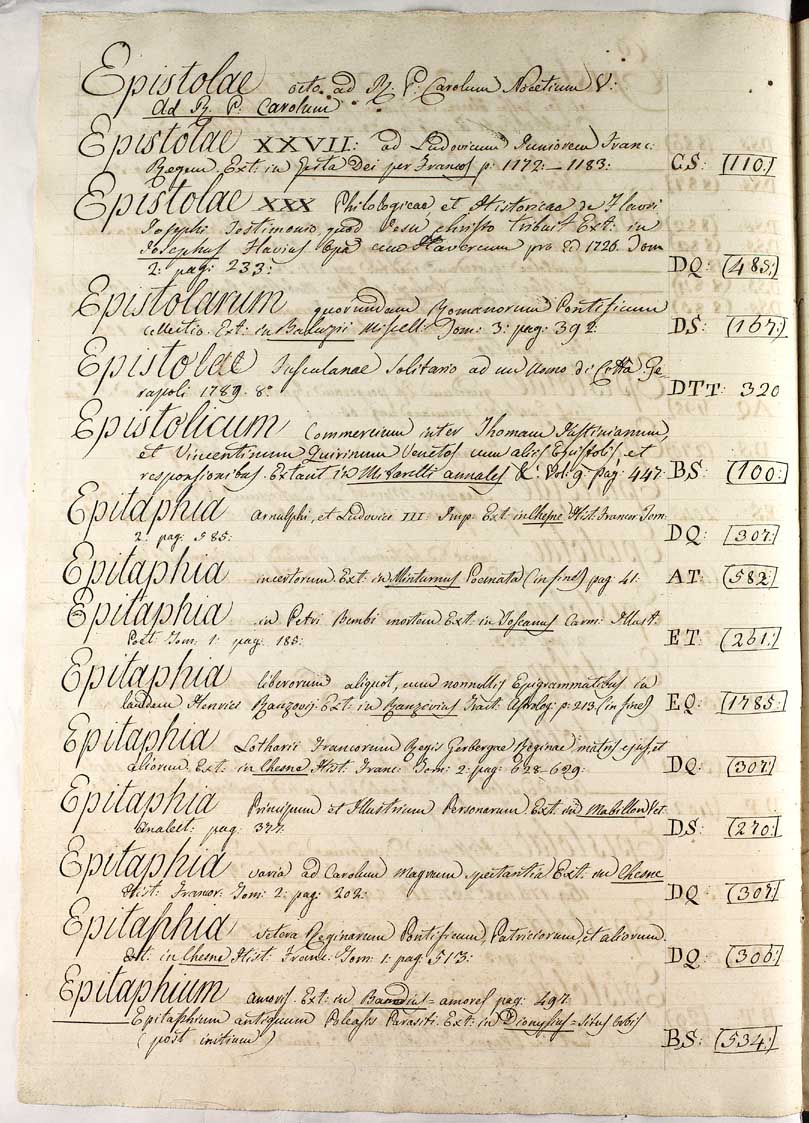 Epistolae octo ad R. P. Carolum Nocetium V:
Ad R. P: Carolum
Epistolae XXVII: ad Ludovicum Juniorem Franc:
Regem. Ext: in Gesta Dei per Francos p: 1172:—1183: CS: (110:)
Epistolae XXX Philologicae, et Historicae de Flavii
Josephi Testimonio, quod Jesu Christo tribuit Ext: in
Josephus Flavius Havercum 1726. Tom
2: pag: 233: DQ: (485:)
Epistolarum quorundam Romanorum Pontificum
collectio. Ext: in Baluzii Miscell: Tom: 3: pag: 392: DS: (167:)
Epistolae Tusculanae Solitario ad un Uomo di Città. Ge-
rapoli 1789. 8º DTT: 320
Epistolicum Commercium inter Thomam Justinianum,
et Vincentinum Quirinum Venetos cum aliis Epistolis, et
responsionibus. Extant in Mitarelli annales &: Vol: 9: pag: 447: BS: (100:)
Epitaphia Arnulphi, et Ludovici III: Imp: Ext: in Chesne Hist: Francor Tom:
2: pag: 585: DQ: (307:)
Epitaphia incertorum. Ext: in Minturnus Poemata (in fine) pag: 41: AT: (582:)
Epitaphia in Petri Bembi mortem Ext: in Toscanus Carm: Illust:
Poet: Tom: 1: pag: 185: ET: (261:)
Epitaphia liberorum aliquot, cum nonnullis Epigrammatibus in
laudem Henrici Ranzovij Ext: in Ranzovius Tract: Astrolog: p: 213: (in fine) EQ: (1785:)
Epitaphia Lotharii Francorum Regis Gerbergae Reginae matris ejus, et
aliorum. Ext: in Chesne Hist: Franc: Tom: 2: pag: 628-629: DQ: (307:)
Epitaphia Principum et Illustrium Personarum. Ext: in Mabillon Vet:
Analect: pag: 377: DS: (270:)
Epitaphia varia ad Carolum Magnum spectantia Ext: in Chesne
Hist: Francor: Tom: 2: pag: 202: DQ: (307:)
Epitaphia vetera Reginarum Pontificum, Patriciorum, et aliorum.
Ext: in Chesne Hist: Franc: Tom: 1: pag: 513: DQ: (306:)
Epitaphium amoris. Ext: in Baudius = amores pag: 497:
Epitaphium antiquum Parasiti. Ext: in Dionysius = situs orbis
(post initium) BS: (534:)